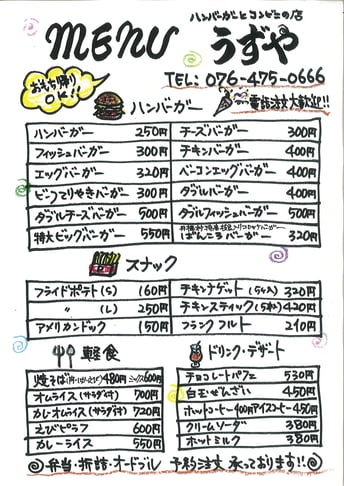 ハンバーガーとコンビニの店
MENU うずや
TEL: 076-475-0666
おもち帰りOK!!
電話注文大歓迎!!
ハンバーガー
ハンバーガー 250円 チーズバーガー 300円
フィッシュバーガー 300円 チキンバーガー 400円
エッグバーガー 320円 ベーコンエッグバーガー 400円
ビーフてりやきバーガー 300円 ダブルバーガー 400円
ダブルチーズバーガー 500円 ダブルフィッシュバーガー 500円
特大ビッグバーガー 550円 ばんどろバーガー 320円
スナック
フライドポテト(S) 160円 チキンナゲット(5ヶ入) 320円
〃 (L) 250円 チキンスティック(5本) 420円
アメリカンドック 150円 フランクフルト 210円
軽食
焼そば 480円 ミックス600円
オムライス(サラダ付) 700円
カレーオムライス(サラダ付) 720円
えびピラフ 600円
カレーライス 550円
ドリンク・デザート
チョコレートパフェ 530円
白玉ぜんざい 450円
ホットコーヒー400円アイスコーヒー450円
クリームソーダ 380円
ホットミルク 380円
弁当・折詰・オードブル 予約注文承っております!!